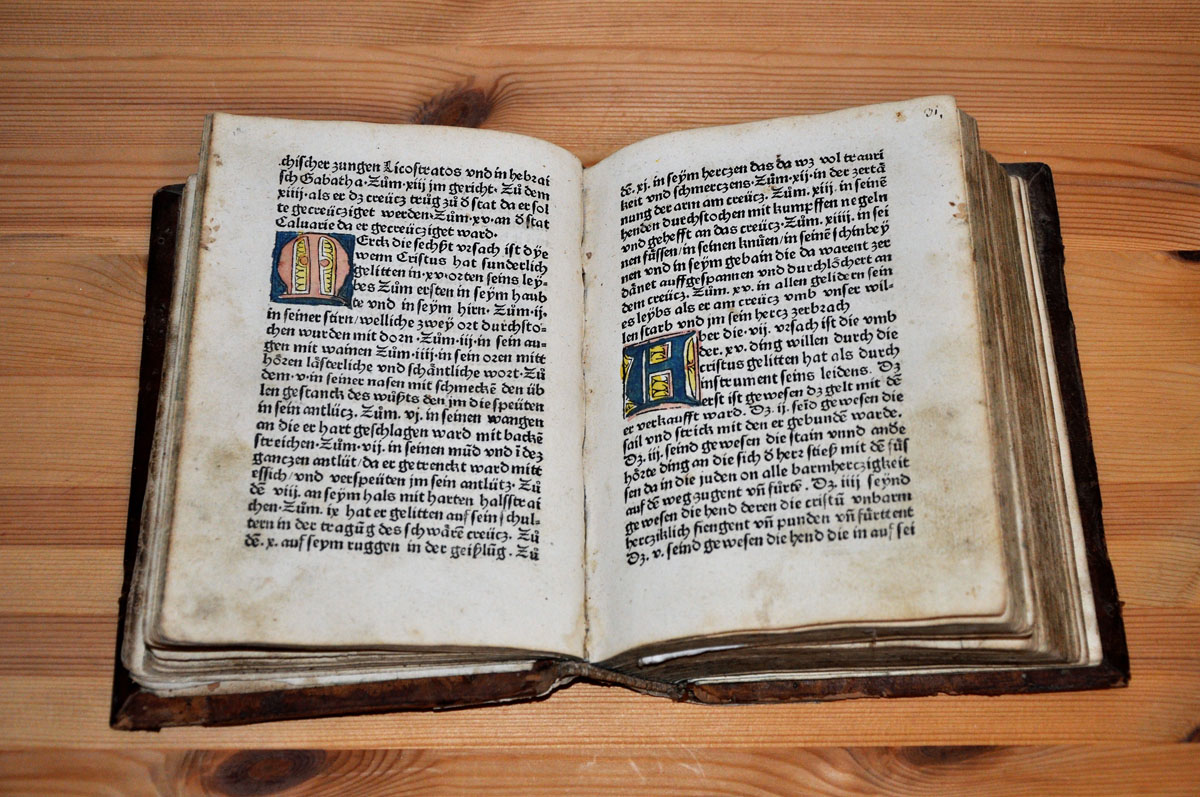 chischer zungen Licostratos vnd in hebrai
sch Gabatha. Zům. xiii jm gericht. Zů dem
xiiii. als er dz creücz trůg zů d̕ stat da er sol
te gecreücziget werden. Zům. xv. an d̕ stat
Caluarie da er gecreücziget ward.
MErck die sechßt vrsach ist dÿe
wenn Cristus hat sunderlich
gelitten in. xv. orten seins leÿ⸗
bes Zům ersten in seÿm haub
te vnd in seÿm hirn. Zům. ij.
in seiner stirn/welliche zweÿ ort durchsto⸗
chen wurden mit dorn. Zům. iij. in sein au⸗
gen mit wainen Zům. iiij. in sein oren mitt
hŏren lästerliche vnd schäntliche wort. Zů
dem. v. in seiner nasen mit schmeckē den üb
len gestanck des wůßts den jm die speüten
in sein antlücz. Zům. vj. in seinen wangen
an die er hart geschlagen ward mit backē
streichen. Zům. vij. in seinen můd vnd ī dez
ganczen antlüt/da er getrenckt ward mitt
essich/vnd verspeüten jm sein antlütz. Zů
dē viij. an seÿm hals mit harten halsstrai
chen. Zům. ix hat er gelitten auf sein schul⸗
tern in der tragūg des schwärē creücz. Zů
dē. x. auf seym ruggen in der geißlūg. Zů
31.
dē. xj. in seÿm herczen das da wz vol trauri
keit vnd schmerczens. Zům. xij. in der zertā
nung der arm am creücz. Zům. xiii. in seinē
henden durchstochen mit kumpffen negeln
vnd gehefft an das creücz. Zům. xiiii. in sei
nen füssen/in seinen knüen/in seinē schinbeÿ
nen vnd in seÿm gebain die da warent zer
dānet auffgespannen vnd durchlöchert an
dem creücz. Zům. xv. in allen gelidern sein
es leÿbs als er am creücz vmb vnser wil⸗
len starb vnd jm sein hercz zerbrach
Aber die. vij. vrsach ist die vmb
der. xv. ding willen durch die
cristus gelitten hat als durch
instrument seins leidens. Dz
erst ist gewesen dz gelt mit dē
er verkaufft ward. Dz. ij. seīd gewesen die
sail vnd strick mit den er gebundē warde.
Dz. iij. seind gewesen die stain vnnd ande
hŏrte ding an die sich d̕ herz stieß mit dē füs
sen da in die juden on alle barmherczigkeit
auf dē weg zugent vn̄ fůrtē. Dz. iiij seÿnd
gewesen die hend deren die cristū vnbarm
hercziklich fiengent vn̄ punden vn̄ fürttent
Dz. v. seind gewesen die hend die in auf sei